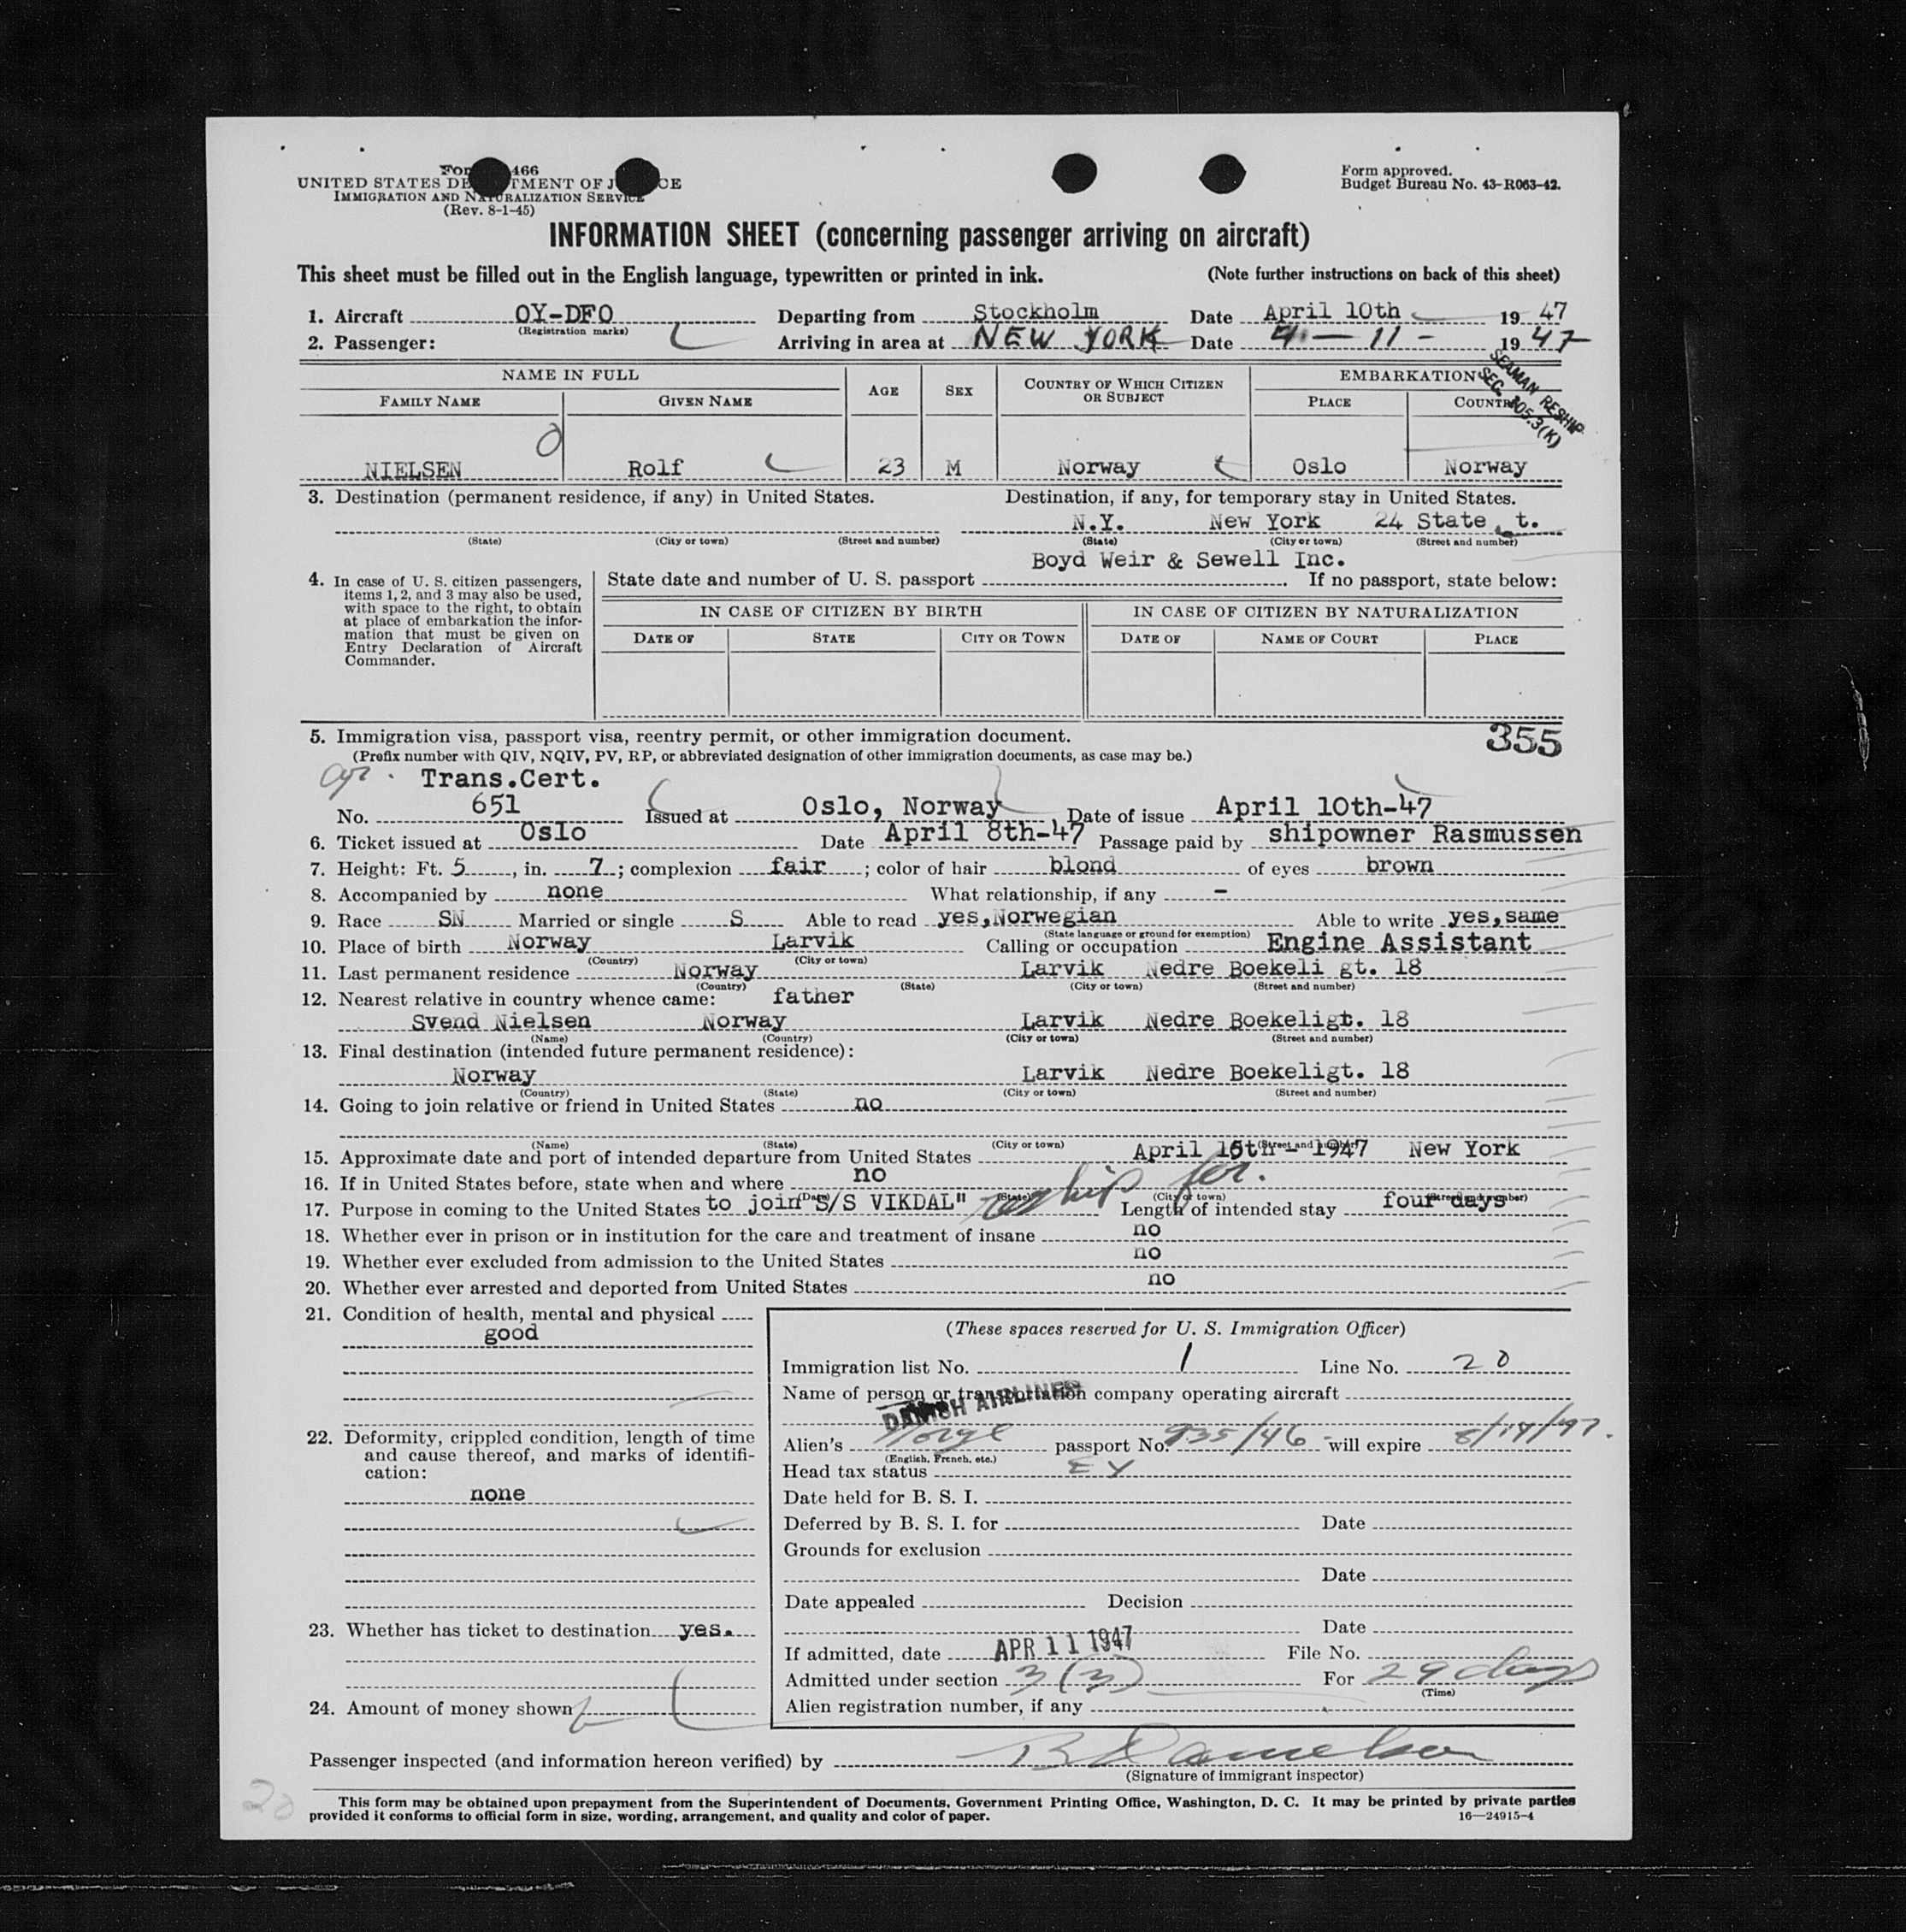 Form 466
UNITED STATES DEPARTMENT OF JUSTICE
IMMIGRATION AND NATURALIZATION SERVICE
(Rev. 8-1-45)
Form approved.
Budget Bureau No. 43-R063-42.
INFORMATION SHEET (concerning passenger arriving on aircraft)
This sheet must be filled out in the English language, typewritten or printed in ink. (Note further instructions on back of this sheet)
1. Aircraft OY-DFO Departing from Stockholm Date April 10th 1947
(Registration marks)
2. Passenger: Arriving in area at NEW YORK Date 4-11- 1947
SEAMAN RESHIP
SEC. 105.3(K)
NAME IN FULL AGE SEX COUNTRY OF WHICH CITIZEN OR SUBJECT EMBARKATION
FAMILY NAME GIVEN NAME PLACE COUNTRY
NIELSEN Rolf 23 M Norway Oslo Norway
3. Destination (permanent residence, if any) in United States. Destination, if any, for temporary stay in United States.
N.Y. New York 24 State t.
(State) (City or town) (Street and number) (State) (City or town) (Street and number)
Boyd Weir & Sewell Inc.
4. In case of U. S. citizen passengers, items 1, 2, and 3 may also be used, with space to the right, to obtain at place of embarkation the information that must be given on Entry Declaration of Aircraft Commander.
State date and number of U. S. passport . If no passport, state below:
IN CASE OF CITIZEN BY BIRTH IN CASE OF CITIZEN BY NATURALIZATION
DATE OF STATE CITY OR TOWN DATE OF NAME OF COURT PLACE
5. Immigration visa, passport visa, reentry permit, or other immigration document. 355
(Prefix number with QIV, NQIV, PV, RP, or abbreviated designation of other immigration documents, as case may be.)
Trans.Cert.
No. 651 Issued at Oslo, Norway Date of issue April 10th-47
6. Ticket issued at Oslo Date April 8th-47 Passage paid by shipowner Rasmussen
7. Height: Ft. 5, in. 7; complexion fair; color of hair blond of eyes brown
8. Accompanied by none What relationship, if any -
9. Race SN Married or single S Able to read yes,Norwegian Able to write yes,same
(State language or ground for exemption)
10. Place of birth Norway Larvik Calling or occupation Engine Assistant
(Country) (City or town)
11. Last permanent residence Norway Larvik Nedre Boekeli gt. 18
(Country) (State) (City or town) (Street and number)
12. Nearest relative in country whence came: father
Svend Nielsen Norway Larvik Nedre Boekeligt. 18
(Name) (Country) (City or town) (Street and number)
13. Final destination (intended future permanent residence):
Norway Larvik Nedre Boekeligt. 18
(Country) (State) (City or town) (Street and number)
14. Going to join relative or friend in United States no
(Name) (State) (City or town) (Street and number)
15. Approximate date and port of intended departure from United States April 15th - 1947 New York
16. If in United States before, state when and where no
(Date) (State) (City or town) (Street and number)
17. Purpose in coming to the United States to join "S/S VIKDAL" reship for. Length of intended stay four days
18. Whether ever in prison or in institution for the care and treatment of insane no
19. Whether ever excluded from admission to the United States no
20. Whether ever arrested and deported from United States no
21. Condition of health, mental and physical
good
22. Deformity, crippled condition, length of time and cause thereof, and marks of identification:
none
23. Whether has ticket to destination yes.
24. Amount of money shown
(These spaces reserved for U. S. Immigration Officer)
Immigration list No. 1 Line No. 20
Name of person or transportation company operating aircraft
DANISH AIRLINES
Alien's Norge passport No. 935/46 will expire 8/14/47.
(English, French, etc.)
Head tax status EX
Date held for B. S. I.
Deferred by B. S. I. for Date
Grounds for exclusion
Date
Date appealed Decision
Date
If admitted, date APR 11 1947 File No.
Admitted under section 3(3) For 29 days
(Time)
Alien registration number, if any
Passenger inspected (and information hereon verified) by B Danielson
(Signature of immigrant inspector)
20
This form may be obtained upon prepayment from the Superintendent of Documents, Government Printing Office, Washington, D. C. It may be printed by private parties
provided it conforms to official form in size, wording, arrangement, and quality and color of paper. 16—24915-4